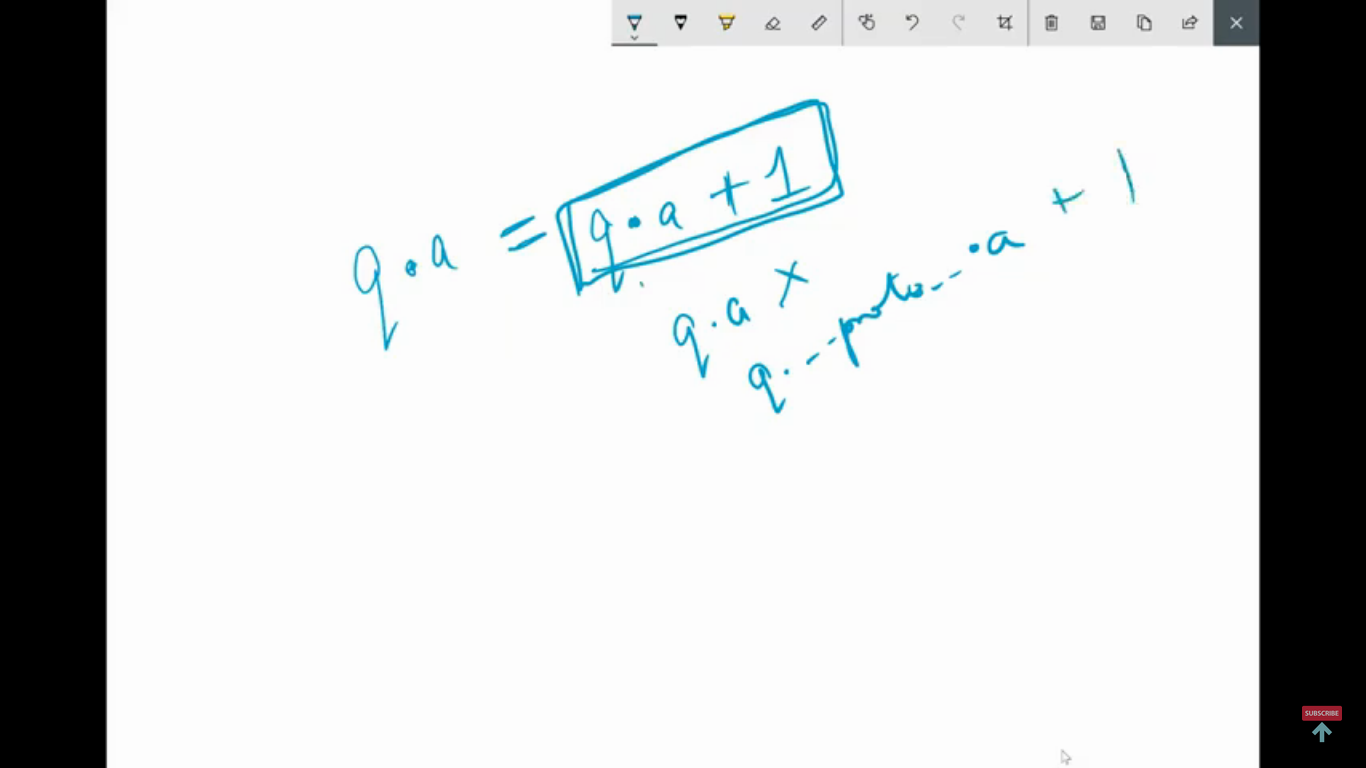 q.a = q.a + 1
q.a X
q.--proto--.a + 1
SUBSCRIBE